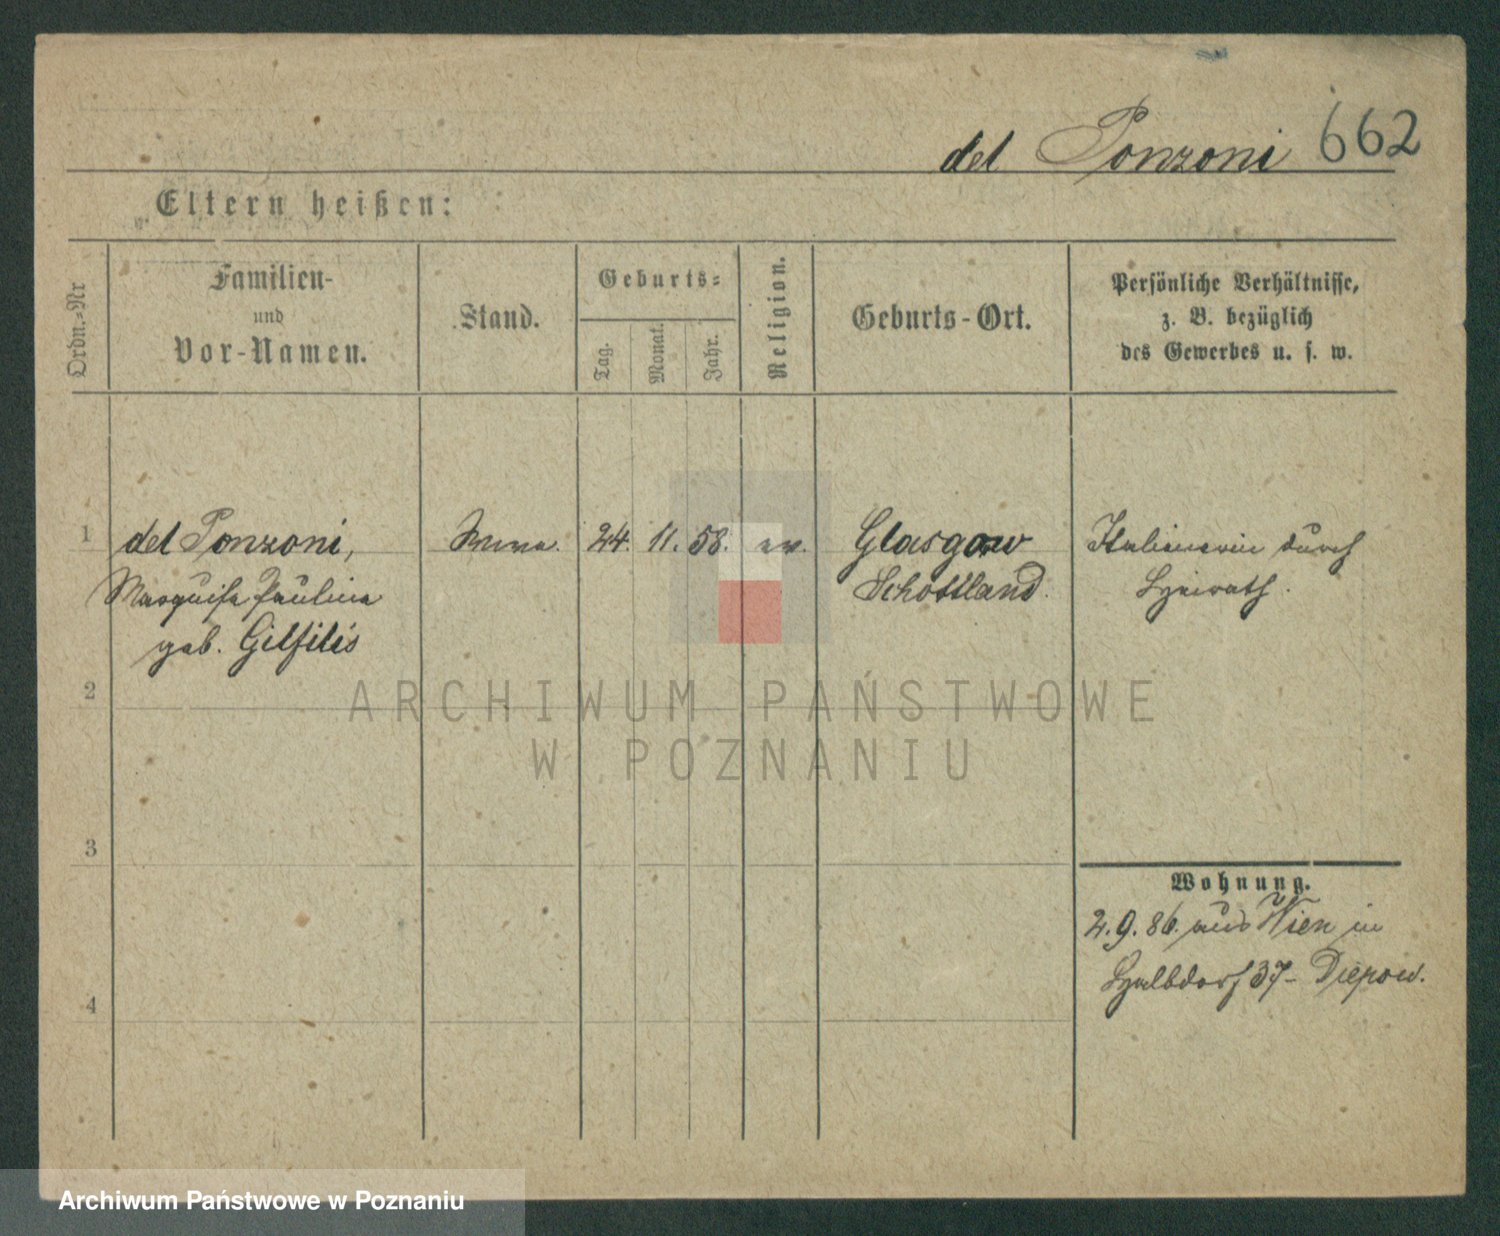 del Ponzoni 662
Eltern heißen:
Ordn.-Nr
Familien-
und
Vor-Namen.
Stand.
Geburts-
Tag.
Monat.
Jahr.
Religion.
Geburts-Ort.
Persönliche Verhältnisse,
z. B. bezüglich
des Gewerbes u. s. w.
1 del Ponzoni, 24. 11. 58. ev. Glasgow Italienerin durch
Marquise Pauline Schottland. Heirath.
geb. Gilfilis
2
ARCHIWUM PAŃSTWOWE
W POZNANIU
3
Wohnung.
2.9.86. aus Wien in
Halbdorf 37-
4
Archiwum Państwowe w Poznaniu